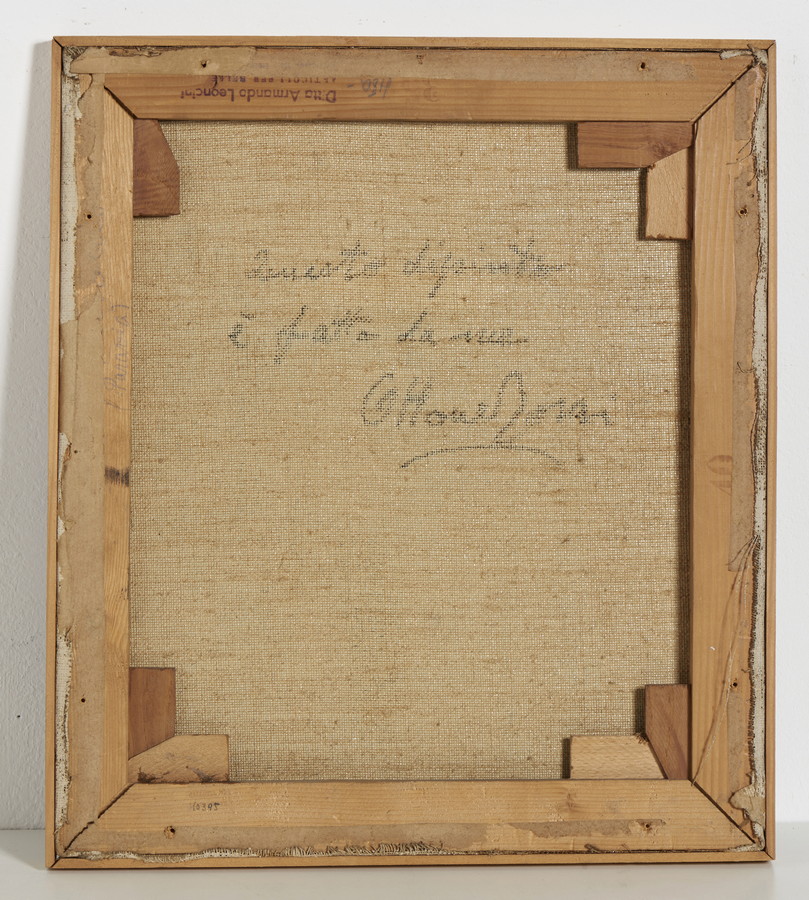 Ditta Armando Leoncini
ARTICOLI PER BELLE
Questo dipinto
è fatto da me
Ottone Rosai
40
10395